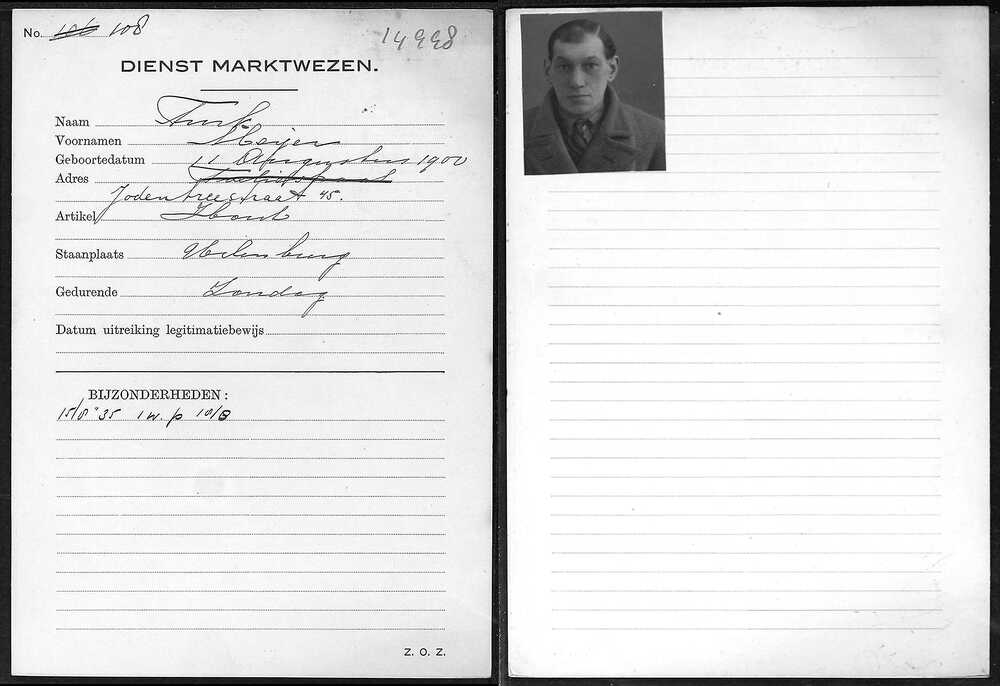 No. 106 108 14998
DIENST MARKTWEZEN.
Naam Turk
Voornamen Meijer
Geboortedatum 11 Augustus 1900
Adres
Jodenbreestraat 45.
Artikel
Staanplaats Uilenburg
Gedurende Zondag
Datum uitreiking legitimatiebewijs
BIJZONDERHEDEN:
15/8 '35 1 w. p 10/B
Z. O. Z.